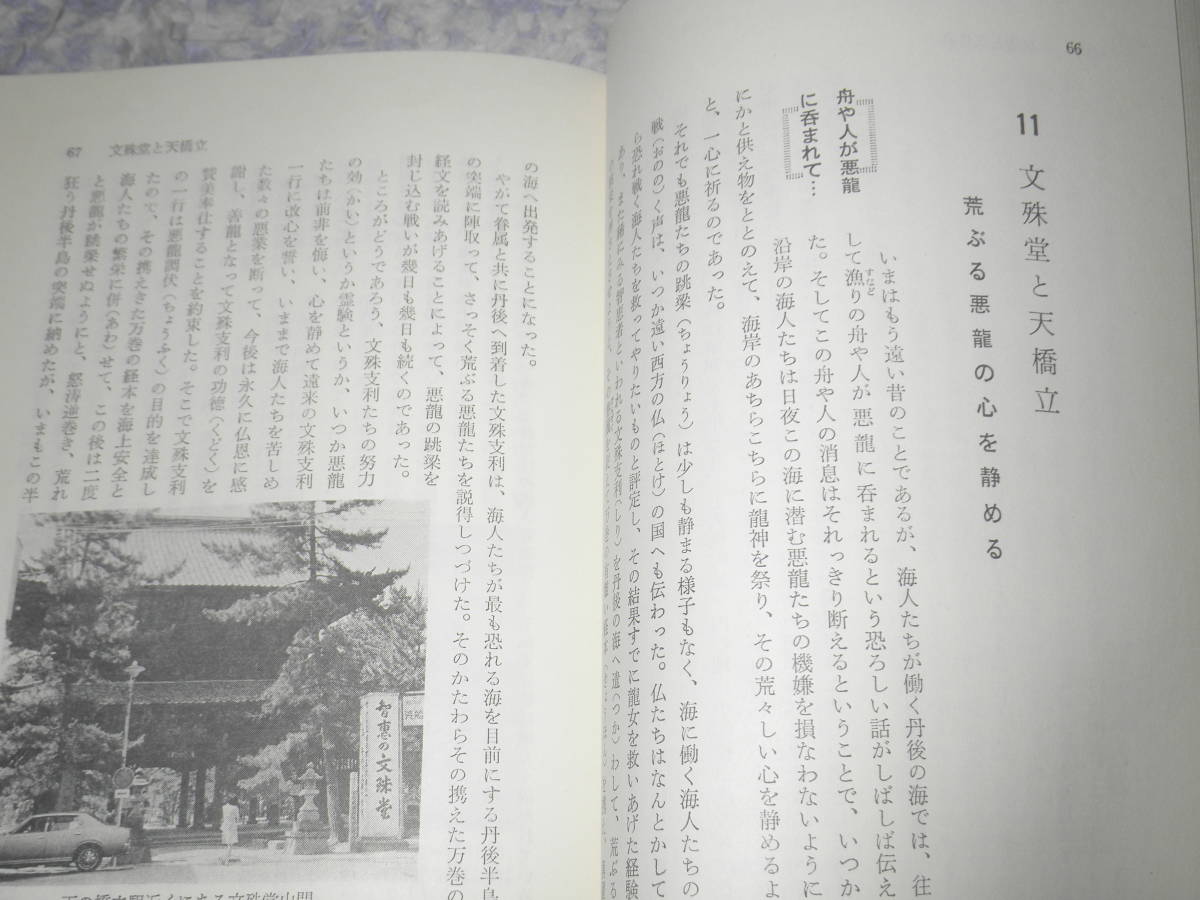 66
11 文殊堂と天橋立
荒ぶる悪龍の心を静める
舟や人が悪龍
に呑まれて…
いまはもう遠い昔のことであるが、海人たちが働く丹後の海では、往
して漁りの舟や人が悪龍に呑まれるという恐ろしい話がしばしば伝え
すなど
た。そしてこの舟や人の消息はそれっきり断えるということで、いつか
沿岸の海人たちは日夜この海に潜む悪龍たちの機嫌を損なわないように
にかと供え物をととのえて、海岸のあちらこちらに龍神を祭り、その荒々しい心を静めるよ
と、一心に祈るのであった。
それでも悪龍たちの跳梁(ちょうりょう)は少しも静まる様子もなく、海に働く海人たちの
戦(おのの)く声は、いつか遠い西方の仏(ほとけ)の国へも伝わった。仏たちはなんとかして
ら恐れ戦く海人たちを救ってやりたいものと評定し、その結果すでに龍女を救いあげた経験
あり、また稀にみる智恵者といわれる文殊支利(しり)を丹後の海へ遣(つか)わして、荒ぶる
67 文殊堂と天橋立
の海へ出発することになった。
やがて眷属と共に丹後へ到着した文殊支利は、海人たちが最も恐れる海を目前にする丹後半島
の突端に陣取って、さっそく荒ぶる悪龍たちを説得しつづけた。そのかたわらその携えた万巻の
経文を読みあげることによって、悪龍の跳梁を
封じ込む戦いが幾日も幾日も続くのであった。
ところがどうであろう、文殊支利たちの努力
の効(かい)というか霊験というか、いつか悪龍
たちは前非を悔い、心を静めて遠来の文殊支利
一行に改心を誓い、いままで海人たちを苦しめ
た数々の悪業を断って、今後は永久に仏恩に感
謝し、善龍となって文殊支利の功徳(くどく)を
賛美奉仕することを約束した。そこで文殊支利
の一行は悪龍調伏(ちょうふく)の目的を達成し
たので、その携えきた万巻の経本を海上安全と
海人たちの繁栄に併(あわ)せて、この後は二度
と悪龍が跳梁せぬようにと、怒涛逆巻き、荒れ
狂う丹後半島の突端に納めたが、いまもこの半
智恵の文殊堂
天の橋立駅近くにある文殊堂山門